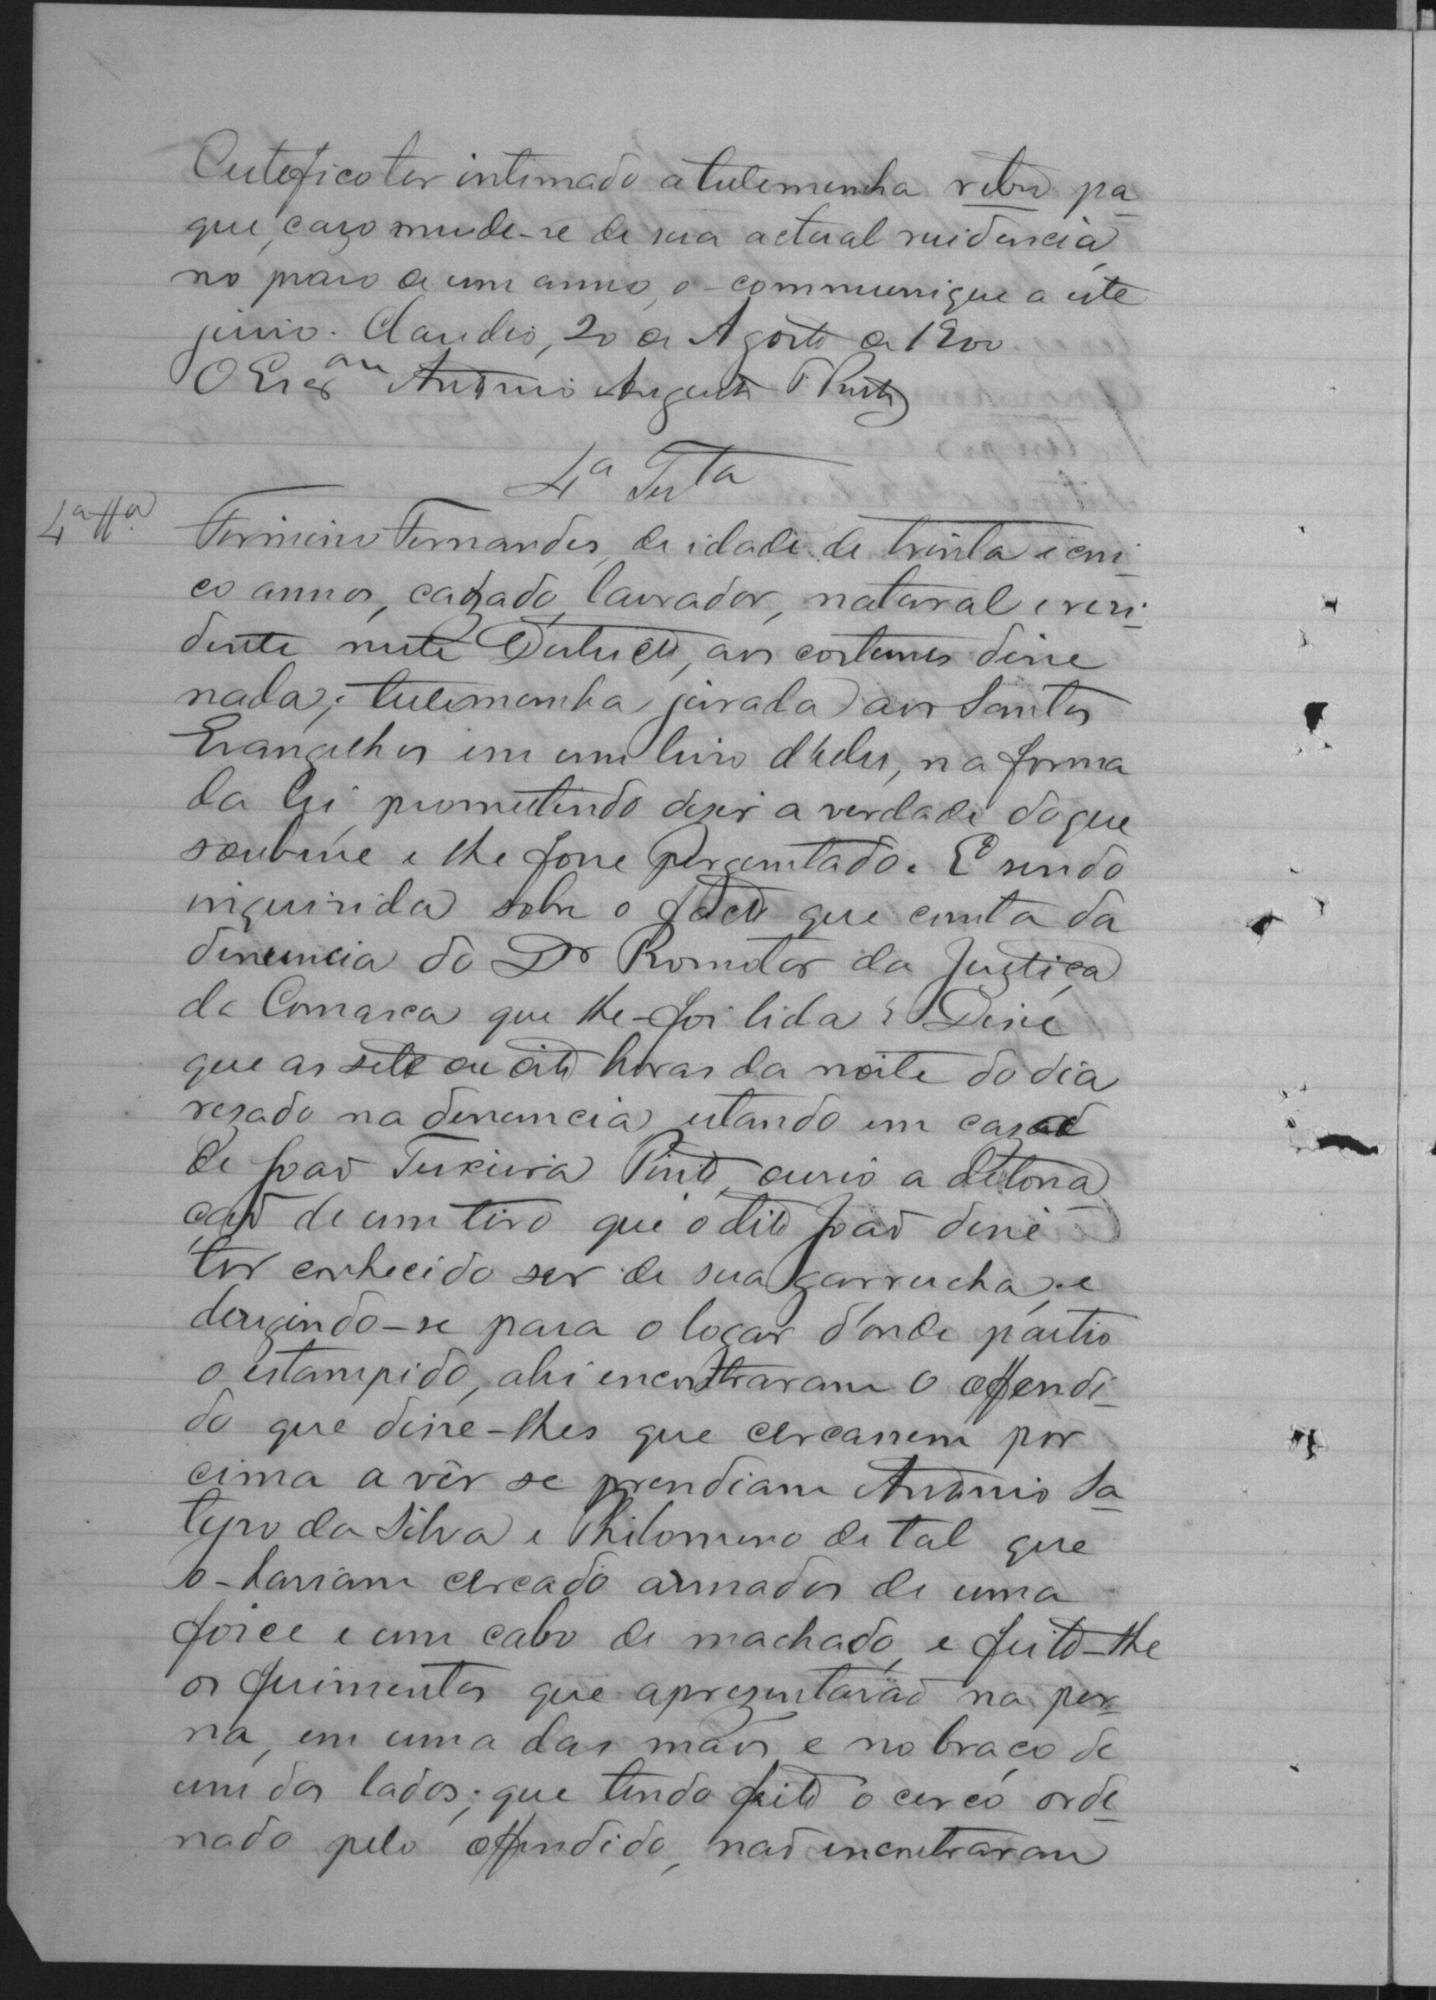 Certefico ter intimado a testemunha retro pa
que, cazo mude-se de sua actual residencia,
no praso de um anno, o-communique a este
juizo. Claudio, 20 de Agosto de 1900
O Escram Antonio Augusto P. Pinto
4a Testa
4a tta
Firmino Fernandes, de idade de trinta e cin-
co annos, cazado, lavrador, natural e resi-
dente neste Districto, aos costumes disse
nada; testemunha jurada aos Santos
Evangelhos em um livro d'elles, na forma
da lei, promettendo dizer a verdade do que
soubesse e lhe fosse perguntado. E sendo
inquirida sobre o facto que consta da
denuncia do Dr Promotor da Justiça
da Comarca que lhe-foi lida: Disse
que as sete ou oito horas da noite do dia
rezado na denuncia, estando em caza
de João Teixeira Pinto, ouvio a detona
ção de um tiro que o dito João disse
ter conhecido ser de sua garrucha, e
derigindo-se para o logar d'onde partio
o estampido, ahi encontraram o offendi-
do que disse-lhes que cercassem por
cima a vêr se prendiam Antonio Sa-
tyro da Silva e Philomeno de tal que
o-haviam cercado armados de uma
foice e um cabo de machado, e feito-lhe
os ferimentos que aprezentavão na per-
na, em uma das mãos e no braço de
um dos lados; que tendo feito o cerco orde-
nado pelo offendido, não encontraram